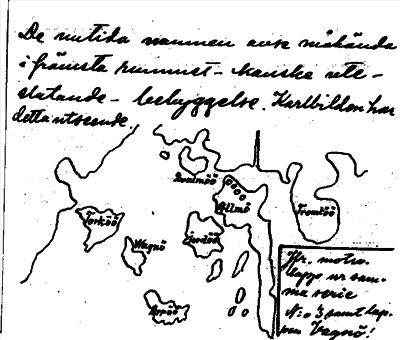 De nutida namnen avse måhända
i främsta rummet - kanske ute-
slutande - bebyggelse. Kartbilden har
detta utseende.
Svalmöö
Almö
Tromtöö
Torköö
Wagnö
Jordöö
Arpöö
Jfr. motiv.
lapp ur sam-
ma serie
N:o 3 samt lap-
pen Vagnö!